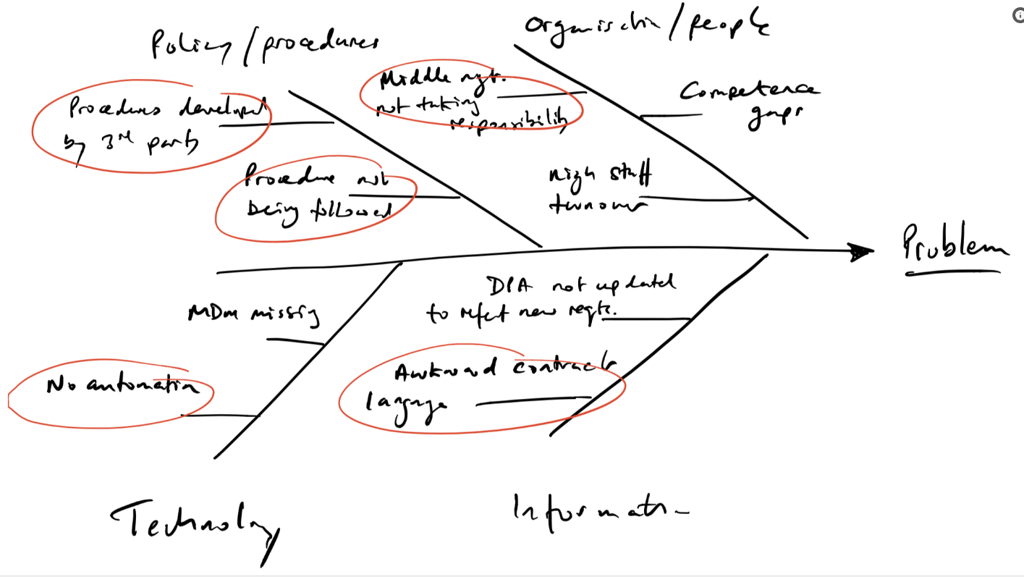 Policy / procedures
Organisation / people
Procedures developed
by 3rd party
Middle mgt.
not taking
responsibility
Competence
gaps
Procedure not
being followed
High staff
turnover
Problem
MDM missing
DPA not updated
to reflect new reqts.
No automation
Awkward contracts
language
Technology
Information